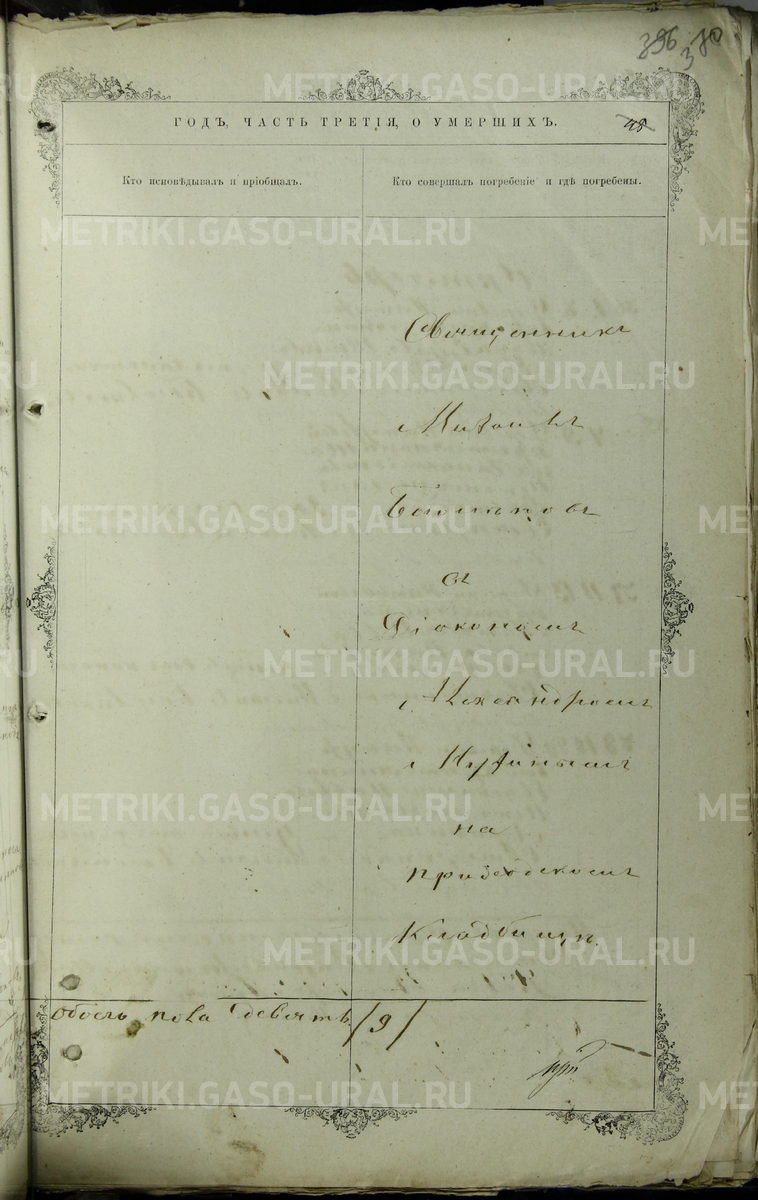 396
380
ГОДЪ, ЧАСТЬ ТРЕТІЯ, О УМЕРШИХЪ.
48
Кто исповѣдывалъ и пріобщалъ.
Кто совершалъ погребеніе и гдѣ погребены.
Священникъ
съ
Діакономъ
Александромъ
на
приходскомъ
Кладбищѣ.
обоего пола девять /9/
METRIKI.GASO-URAL.RU